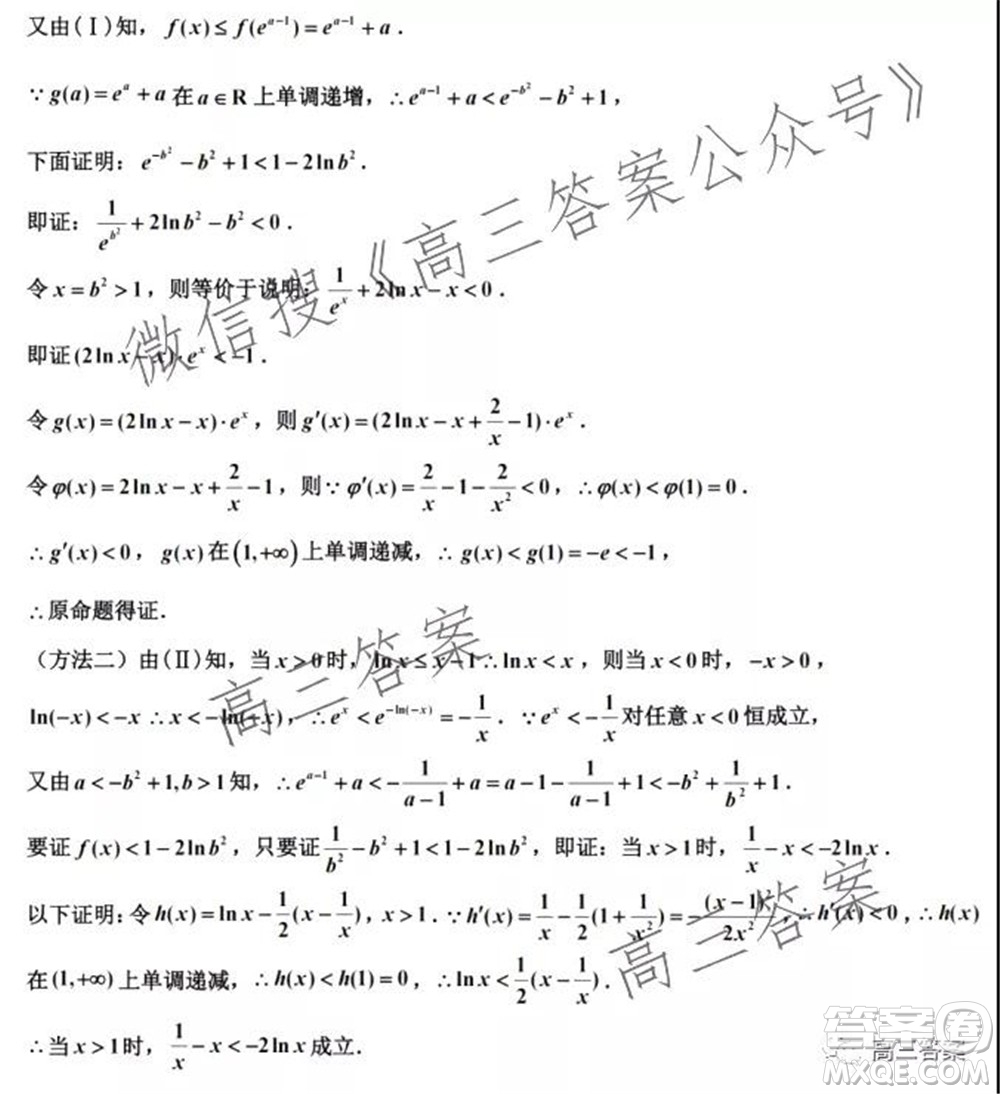 又由(Ⅰ)知，f(x)≤f(e^{a-1})=e^{a-1}+a．
∵g(a)=e^a+a在a∈R上单调递增，∴e^{a-1}+a<e^{-b^2}-b^2+1，
下面证明：e^{-b^2}-b^2+1<1-2lnb^2．
即证：\frac{1}{e^{b^2}}+2lnb^2-b^2<0．
令x=b^2>1，则等价于说明：\frac{1}{e^x}+2lnx-x<0．
即证(2lnx-x)·e^x<-1．
令g(x)=(2lnx-x)·e^x，则g′(x)=(2lnx-x+\frac{2}{x}-1)·e^x．
令φ(x)=2lnx-x+\frac{2}{x}-1，则∵φ′(x)=\frac{2}{x}-1-\frac{2}{x^2}<0，∴φ(x)<φ(1)=0．
∴g′(x)<0，g(x)在(1,+∞)上单调递减，∴g(x)<g(1)=-e<-1，
∴原命题得证．
（方法二）由(Ⅱ)知，当x>0时，lnx≤x-1∴lnx<x，则当x<0时，-x>0，
ln(-x)<-x∴x<-ln(-x)，∴e^x<e^{-ln(-x)}=-\frac{1}{x}．∵e^x<-\frac{1}{x}对任意x<0恒成立，
又由a<-b^2+1,b>1知，∴e^{a-1}+a<-\frac{1}{a-1}+a=a-1-\frac{1}{a-1}+1<-b^2+\frac{1}{b^2}+1．
要证f(x)<1-2lnb^2，只要证\frac{1}{b^2}-b^2+1<1-2lnb^2，即证：当x>1时，\frac{1}{x}-x<-2lnx．
以下证明：令h(x)=lnx-\frac{1}{2}(x-\frac{1}{x})，x>1．∵h′(x)=\frac{1}{x}-\frac{1}{2}(1+\frac{1}{x^2})=-\frac{(x-1)^2}{2x^2}，∴h′(x)<0，∴h(x)
在(1,+∞)上单调递减，∴h(x)<h(1)=0，∴lnx<\frac{1}{2}(x-\frac{1}{x})．
∴当x>1时，\frac{1}{x}-x<-2lnx成立．
微信搜《高三答案公众号》
高三答案
高三答案
高三答案
答案圈
MXQE.COM